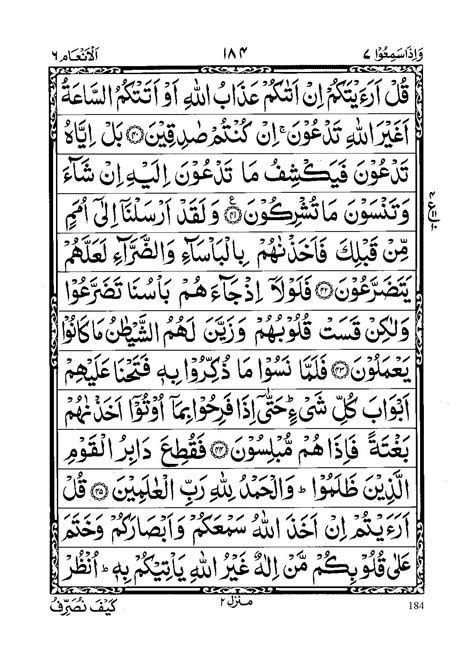 وَاِذَا سَمِعُوْا ٧ ١٨٤ اَلْاَنْعَام ٦
قُلْ اَرَءَيْتَكُمْ اِنْ اَتٰىكُمْ عَذَابُ اللهِ اَوْ اَتَتْكُمُ السَّاعَةُ
اَغَيْرَ اللهِ تَدْعُوْنَ ۚ اِنْ كُنْتُمْ صٰدِقِيْنَ ﴿٤٠﴾ بَلْ اِيَّاهُ
تَدْعُوْنَ فَيَكْشِفُ مَا تَدْعُوْنَ اِلَيْهِ اِنْ شَآءَ
وَتَنْسَوْنَ مَا تُشْرِكُوْنَ ﴿٤١﴾ ع وَلَقَدْ اَرْسَلْنَآ اِلٰٓى اُمَمٍ
مِّنْ قَبْلِكَ فَاَخَذْنٰهُمْ بِالْبَاْسَآءِ وَالضَّرَّآءِ لَعَلَّهُمْ
يَتَضَرَّعُوْنَ ﴿٤٢﴾ فَلَوْلَآ اِذْ جَآءَهُمْ بَاْسُنَا تَضَرَّعُوْا
وَلٰكِنْ قَسَتْ قُلُوْبُهُمْ وَزَيَّنَ لَهُمُ الشَّيْطٰنُ مَا كَانُوْا
يَعْمَلُوْنَ ﴿٤٣﴾ فَلَمَّا نَسُوْا مَا ذُكِّرُوْا بِهٖ فَتَحْنَا عَلَيْهِمْ
اَبْوَابَ كُلِّ شَيْءٍ ؕ حَتّٰٓى اِذَا فَرِحُوْا بِمَآ اُوْتُوْٓا اَخَذْنٰهُمْ
بَغْتَةً فَاِذَا هُمْ مُّبْلِسُوْنَ ﴿٤٤﴾ فَقُطِعَ دَابِرُ الْقَوْمِ
الَّذِيْنَ ظَلَمُوْا ؕ وَالْحَمْدُ لِلّٰهِ رَبِّ الْعٰلَمِيْنَ ﴿٤٥﴾ قُلْ
اَرَءَيْتُمْ اِنْ اَخَذَ اللهُ سَمْعَكُمْ وَاَبْصَارَكُمْ وَخَتَمَ
عَلٰى قُلُوْبِكُمْ مَّنْ اِلٰهٌ غَيْرُ اللهِ يَاْتِيْكُمْ بِهٖ ؕ اُنْظُرْ
كَيْفَ نُصَرِّفُ منزل ٢ 184